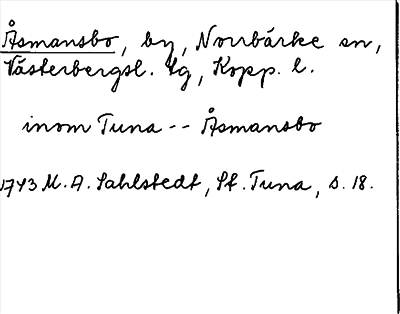 Åsmansbo, by, Norrbärke sn,
Västerbergsl. tg, Kopp. l.
inom Tuna -- Åsmansbo
1743 M. A. Sahlstedt, St. Tuna, s. 18.